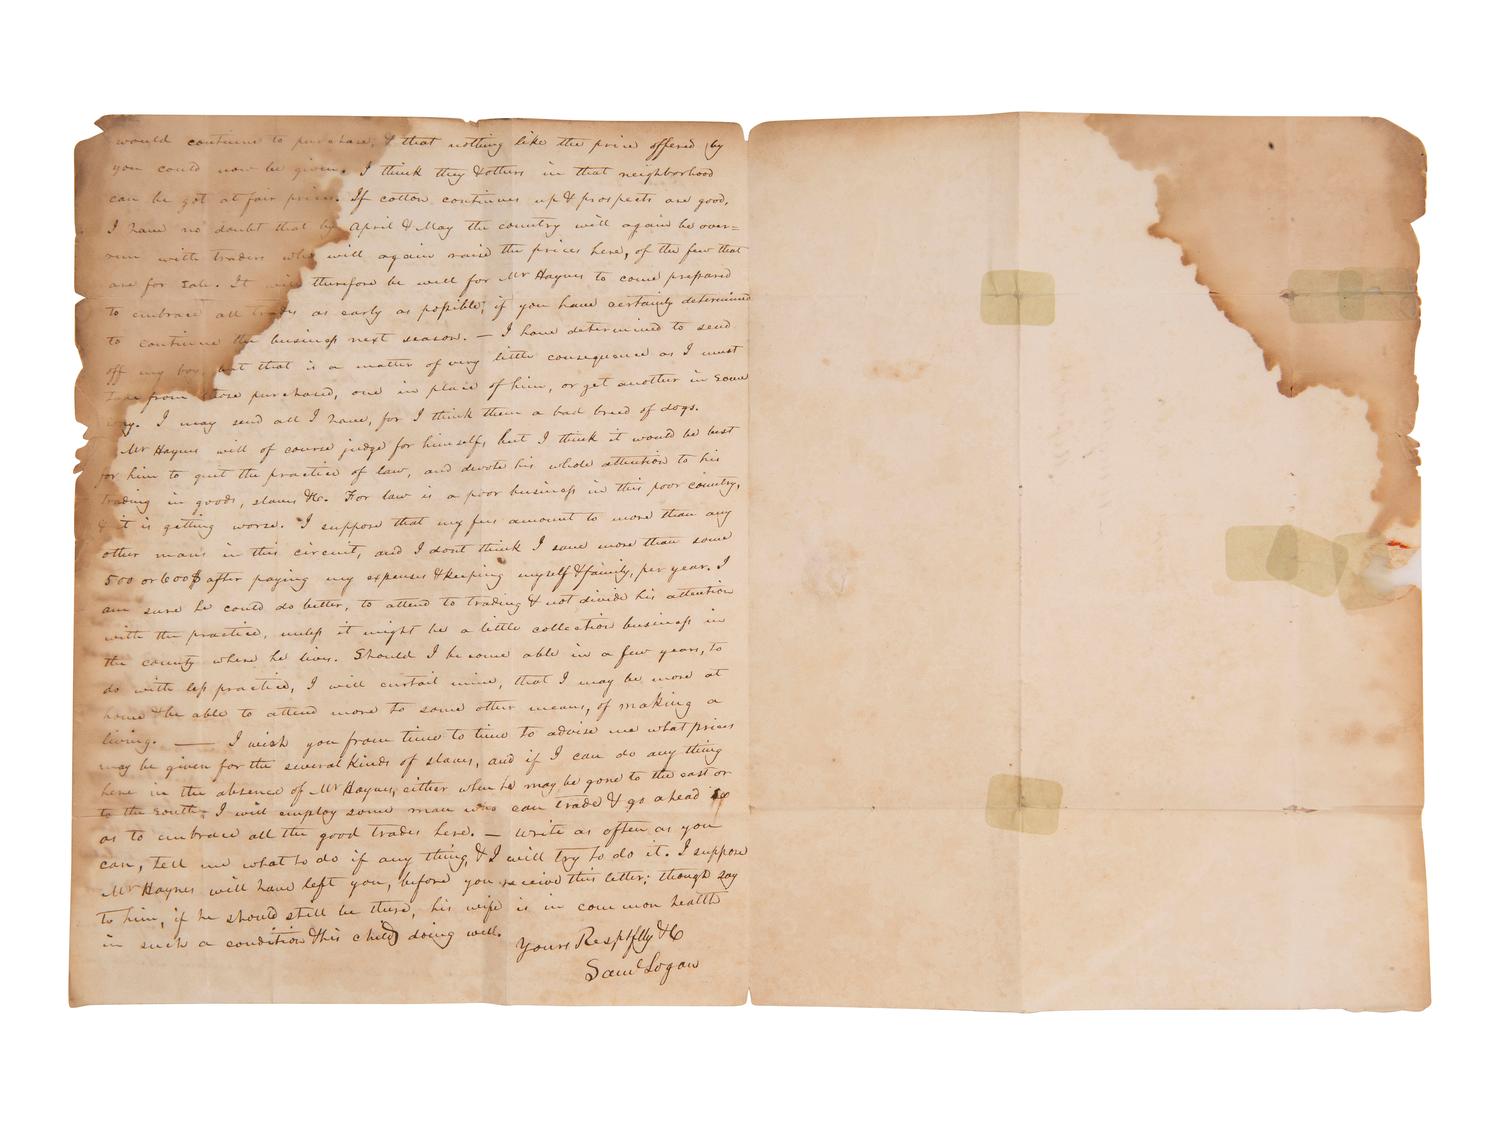 would continue to purchase, & that nothing like the price offered by
you could now be given. I think they & others in that neighborhood
can be got at fair prices. If cotton continues up & prospects are good,
I have no doubt that by April & May the country will again be over=
run with traders who will again raise the prices here, of the few that
are for sale. It will therefore be well for Mr Haynes to come prepared
to embrace all trades as early as possible, if you have certainly determined
to continue the business next season. — I have determined to send
off my boy, but that is a matter of very little consequence as I must
take from those purchased, one in place of him, or get another in some
way. I may send all I have, for I think them a bad breed of dogs.
Mr Haynes will of course judge for himself, but I think it would be best
for him to quit the practice of law, and devote his whole attention to his
trading in goods, slaves &c. For law is a poor business in this poor country,
& it is getting worse. I suppose that my fees amount to more than any
other mans in this circuit, and I dont think I save more than some
500 or 600$ after paying my expenses & keeping myself & family, per year. I
am sure he could do better, to attend to trading & not divide his attention
with the practice, unless it might be a little collection business in
the county where he lives. Should I become able in a few years, to
do with less practice, I will curtail mine, that I may be more at
home & be able to attend more to some other means, of making a
living. — I wish you from time to time to advise me what prices
may be given for the several kinds of slaves, and if I can do any thing
here in the absence of Mr Haynes, either when he may be gone to the east or
to the South, I will employ some man who can trade & go ahead so
as to embrace all the good trades here. — Write as often as you
can, tell me what to do if any thing, & I will try to do it. I suppose
Mr Haynes will have left you, before you receive this letter; though say
to him, if he should still be there, his wife is in common health
in such a condition & his child doing well.
Yours Respflly &c
Saml Logan